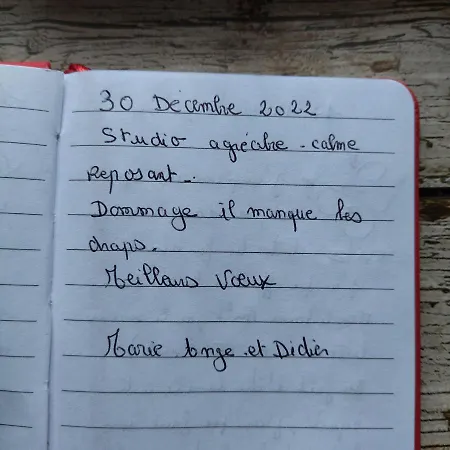 30 Décembre 2022
Studio agréable - calme
Reposant -.
Dommage il manque les
draps.
Meilleurs Vœux
Marie Ange et Didier